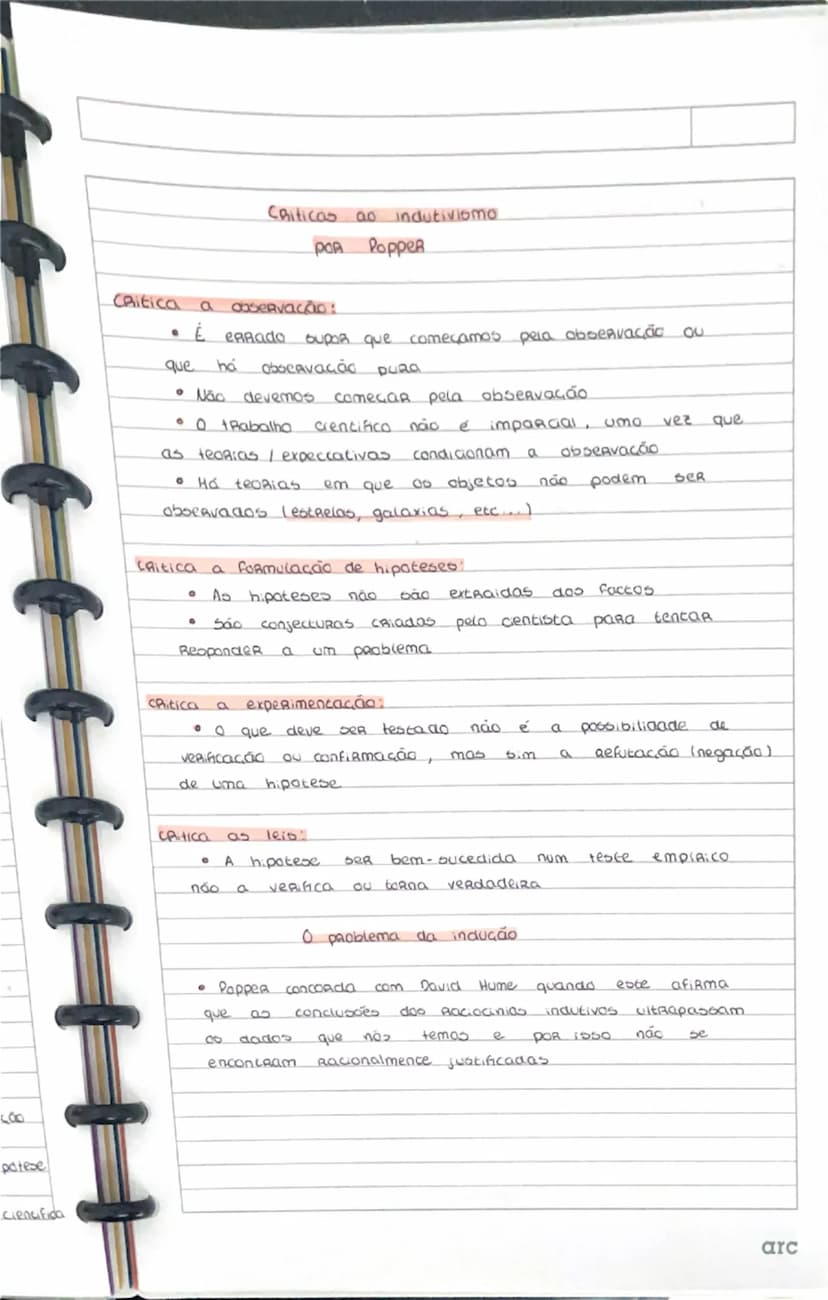 Criticas ao indutivismo
por Popper
Critica a observação:
• É errado supor que começamos pela observação ou
que há observação pura
• Não devemos começar pela observação
• O trabalho cientifico não é imparcial, uma vez que
as teorias / expectativas condicionam a observação
• Há teorias em que os objetos não podem ser
observados (estrelas, galaxias, etc...)
Critica a formulação de hipoteses:
• As hipoteses não são extraidas dos factos
• São conjecturas criadas pelo centista para tentar
responder a um problema
Critica a experimentação:
• O que deve ser testado não é a possibilidade de
verificação ou confirmação, mas sim a refutação (negação)
de uma hipotese
Critica as leis:
• A hipotese ser bem-sucedida num teste empirico
não a verifica ou torna verdadeira
O problema da indução
• Popper concorda com David Hume quando este afirma
que as conclusões dos raciocinios indutivos ultrapassam
os dados que nós temos e por isso não se
encontram racionalmente justificadas
ção
potese
cientifica
arc